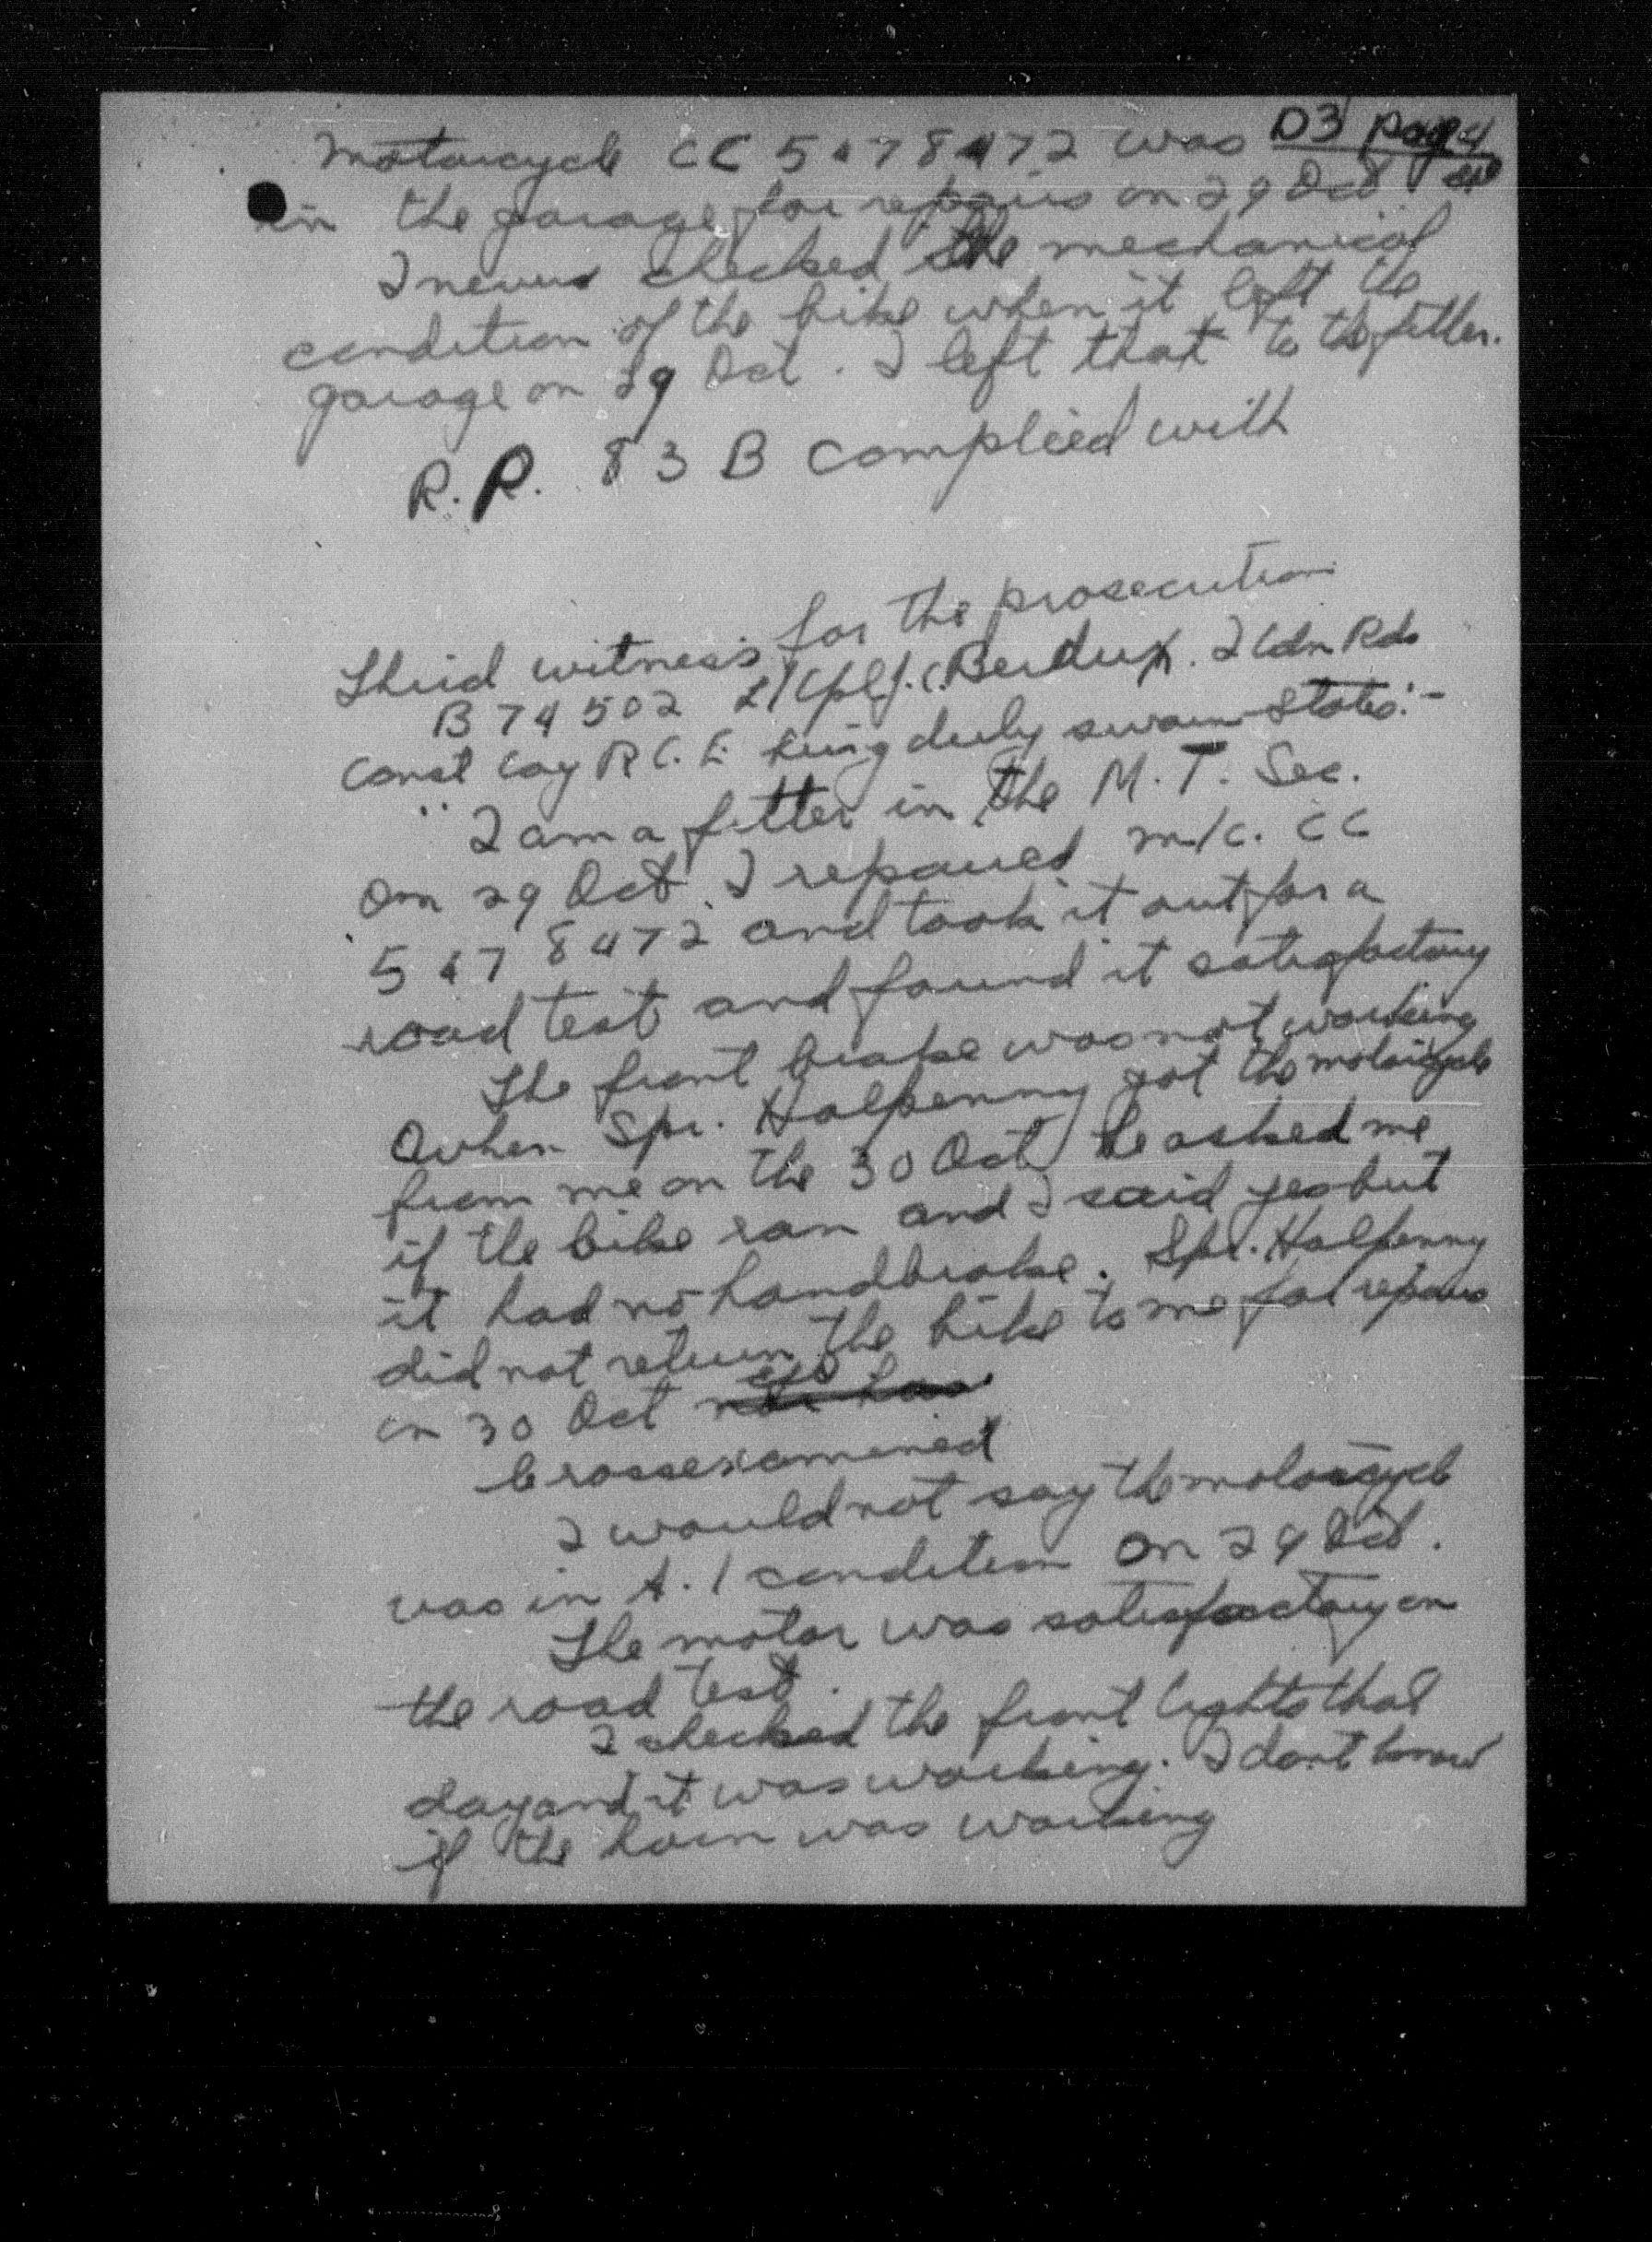 D3 page 4
Motorcycle CC 5478472 was
in the garage for repairs on 29 Oct
I never checked the mechanical
condition of the bike when it left the
garage on 29 Oct. I left that to the fitter.
R.P. 83 B complied with
Third witness for the prosecution
B 74502 L/Cpl J.C. 2 Cdn Rds
Const Coy R.C.E being duly sworn states:-
"I am a fitter in the M.T. Sec.
On 29 Oct I repaired m/c. CC
5478472 and took it out for a
road test and found it satisfactory
The front brake was not working
When Spr. Halpenny got the motorcycle
from me on the 30 Oct he asked me
if the bike ran and I said yes but
it had no handbrake. Spr. Halpenny
did not return the bike to me for repairs
on 30 Oct
Crossexamined
I would not say the motorcycle
was in A.1 condition on 29 Oct.
The motor was satisfactory on
the road test.
I checked the front lights that
day and it was working. I dont know
if the horn was working